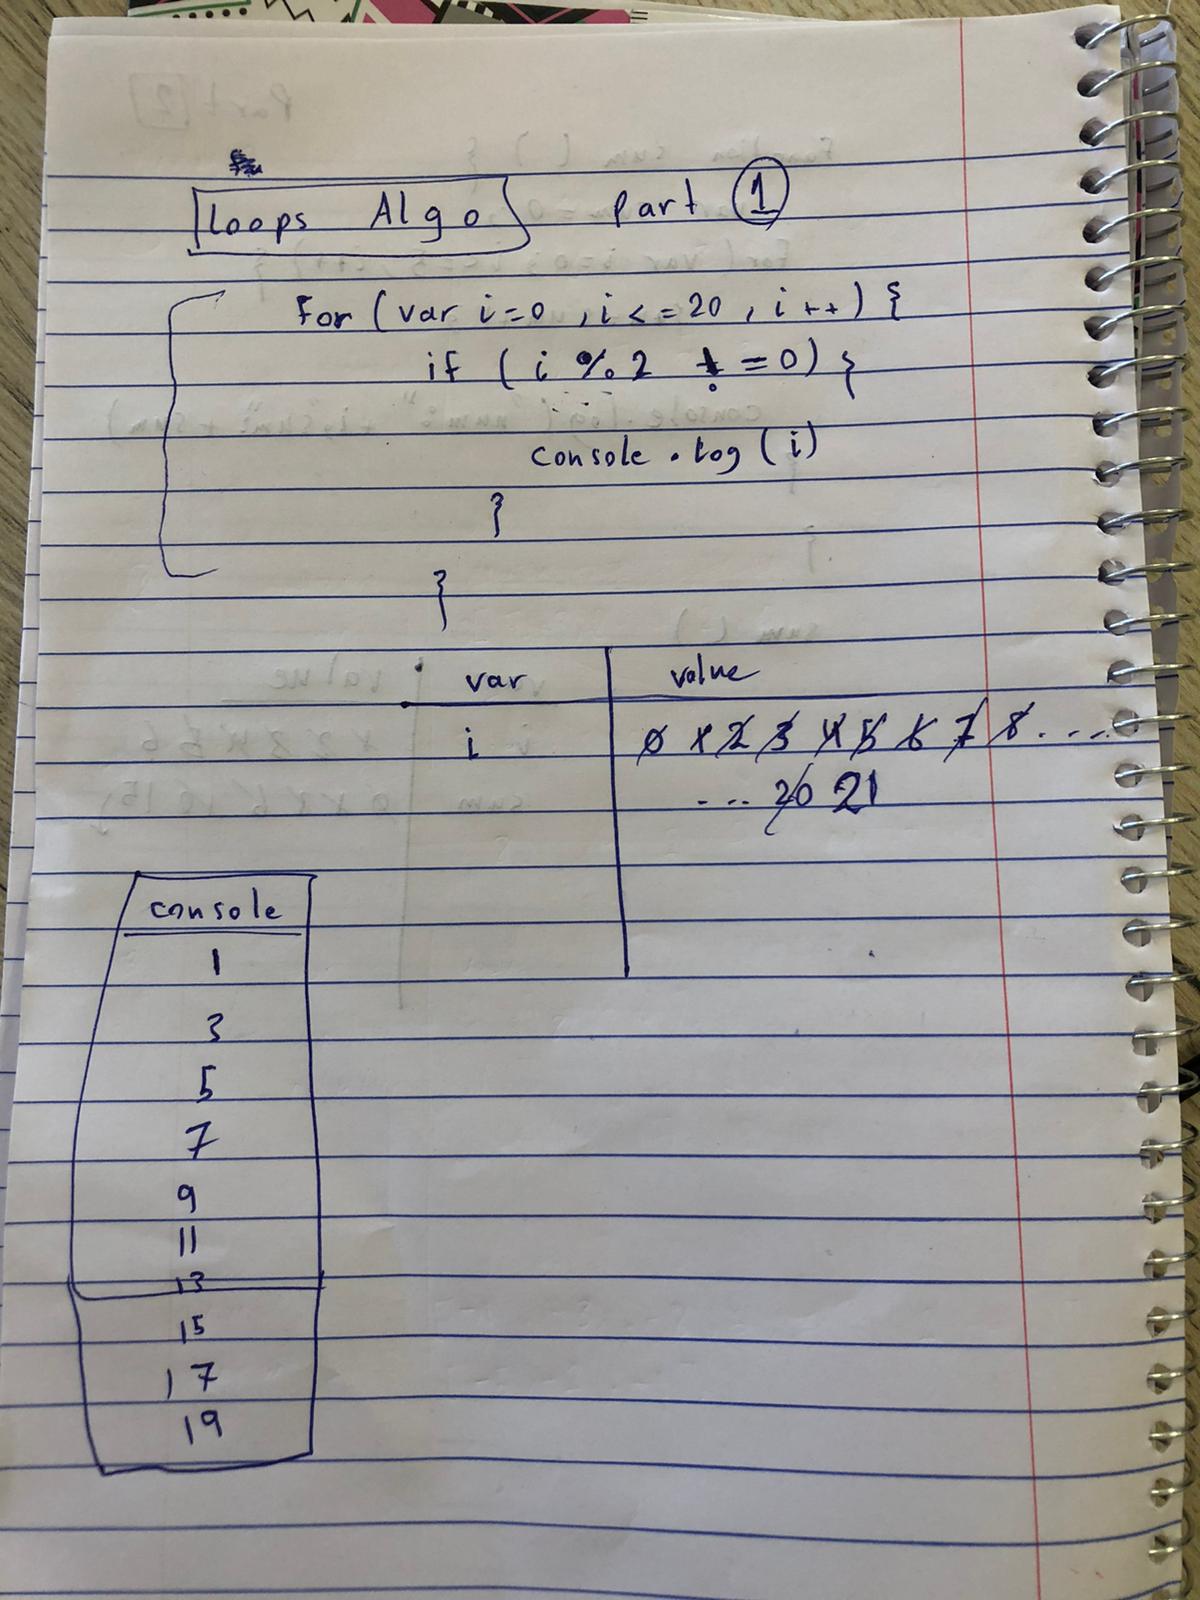 Loops Algo Part 1
For (var i=0 , i <= 20 , i ++) {
if ( i % 2 != 0) {
console . log ( i )
}
}
var value
i 0 1 2 3 4 5 6 7 8 ....
... 20 21
console
1
3
5
7
9
11
13
15
17
19